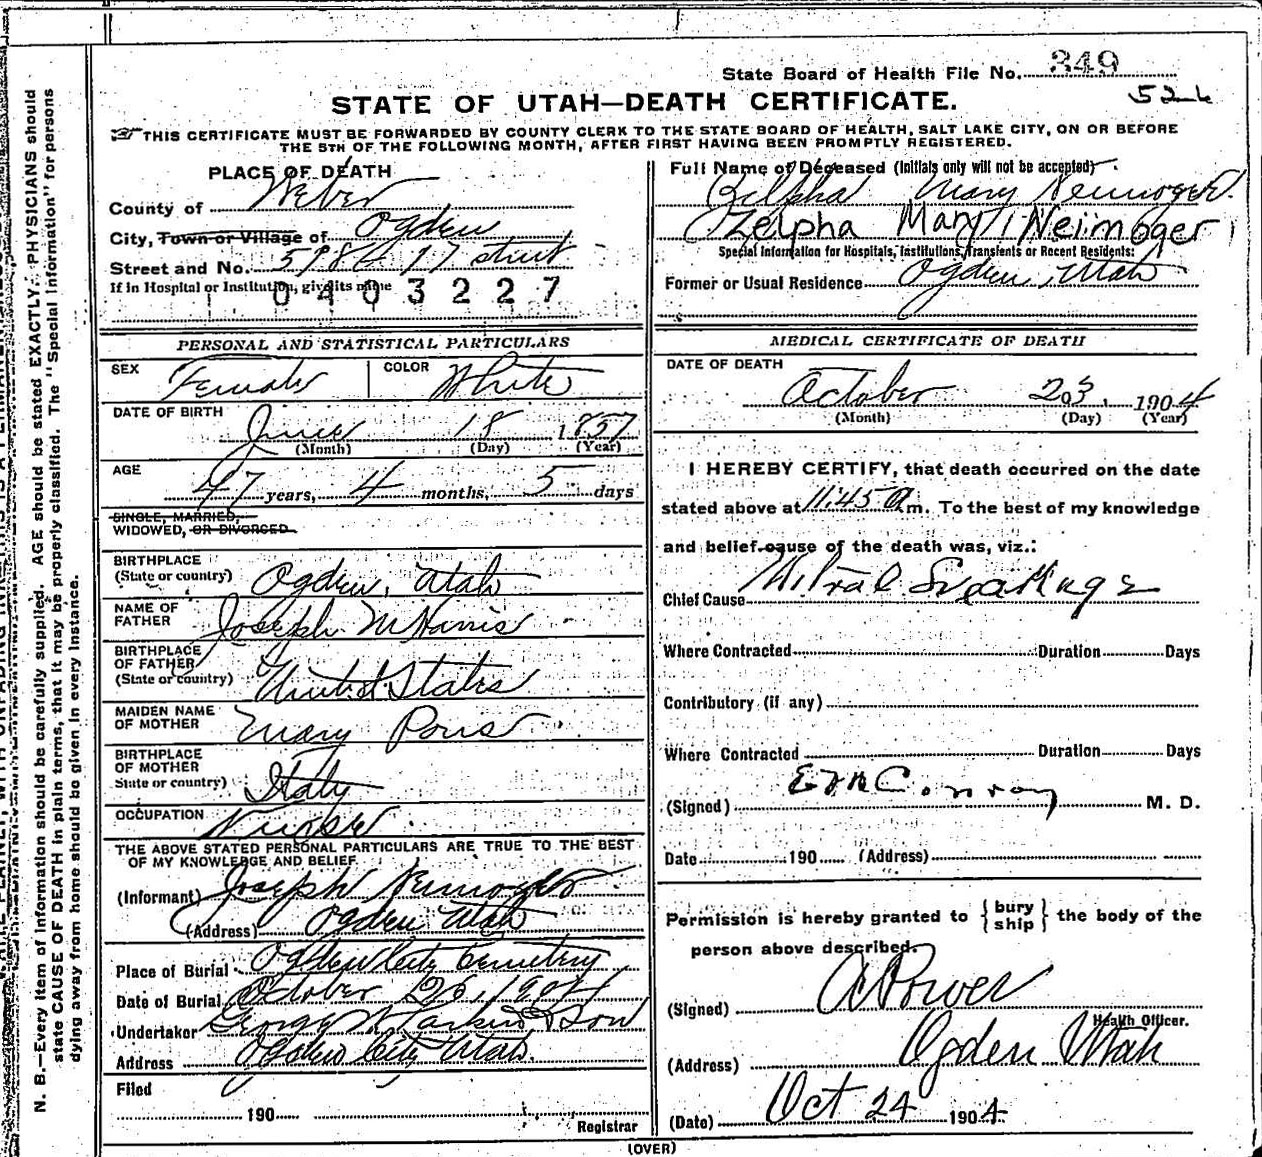 State Board of Health File No. 349
526
STATE OF UTAH—DEATH CERTIFICATE.
THIS CERTIFICATE MUST BE FORWARDED BY COUNTY CLERK TO THE STATE BOARD OF HEALTH, SALT LAKE CITY, ON OR BEFORE
THE 5TH OF THE FOLLOWING MONTH, AFTER FIRST HAVING BEEN PROMPTLY REGISTERED.
PLACE OF DEATH
County of Weber
City, Town or Village of Ogden
Street and No. 17 street
If in Hospital or Institution, give its name
0403227
Full Name of Deceased (Initials only will not be accepted)
Zilpha Mary Neimoger.
Zelpha Mary Neimoger
Special Information for Hospitals, Institutions, Transients or Recent Residents:
Former or Usual Residence Ogden, Utah
PERSONAL AND STATISTICAL PARTICULARS
SEX Female COLOR White
DATE OF BIRTH
June 18 1857
(Month) (Day) (Year)
AGE
47 years, 4 months, 5 days
SINGLE, MARRIED,
WIDOWED, OR DIVORCED
BIRTHPLACE
(State or country) Ogden, Utah
NAME OF
FATHER Joseph M Harris
BIRTHPLACE
OF FATHER
(State or country) United States
MAIDEN NAME
OF MOTHER Mary Pons
BIRTHPLACE
OF MOTHER
State or country) Italy
OCCUPATION Nurse
THE ABOVE STATED PERSONAL PARTICULARS ARE TRUE TO THE BEST
OF MY KNOWLEDGE AND BELIEF.
(Informant) Joseph Neimoger
(Address) Ogden Utah
Place of Burial Ogden City Cemetery
Date of Burial October 26, 1904
Undertaker George W Larkin & Son
Address Ogden City Utah.
Filed
190
Registrar
MEDICAL CERTIFICATE OF DEATH
DATE OF DEATH
October 23, 1904
(Month) (Day) (Year)
I HEREBY CERTIFY, that death occurred on the date
stated above at 11.45 a m. To the best of my knowledge
and belief cause of the death was, viz.:
Chief Cause Mitral
Where Contracted Duration Days
Contributory (if any)
Where Contracted Duration Days
(Signed) Conroy M. D.
Date 190 (Address)
Permission is hereby granted to { bury ship } the body of the
person above described.
(Signed) A Power
Health Officer.
(Address) Ogden Utah
(Date) Oct 24 1904
(OVER)
N. B.—Every item of information should be carefully supplied. AGE should be stated EXACTLY. PHYSICIANS should
state CAUSE OF DEATH in plain terms, that it may be properly classified. The "Special Information" for persons
dying away from home should be given in every instance.